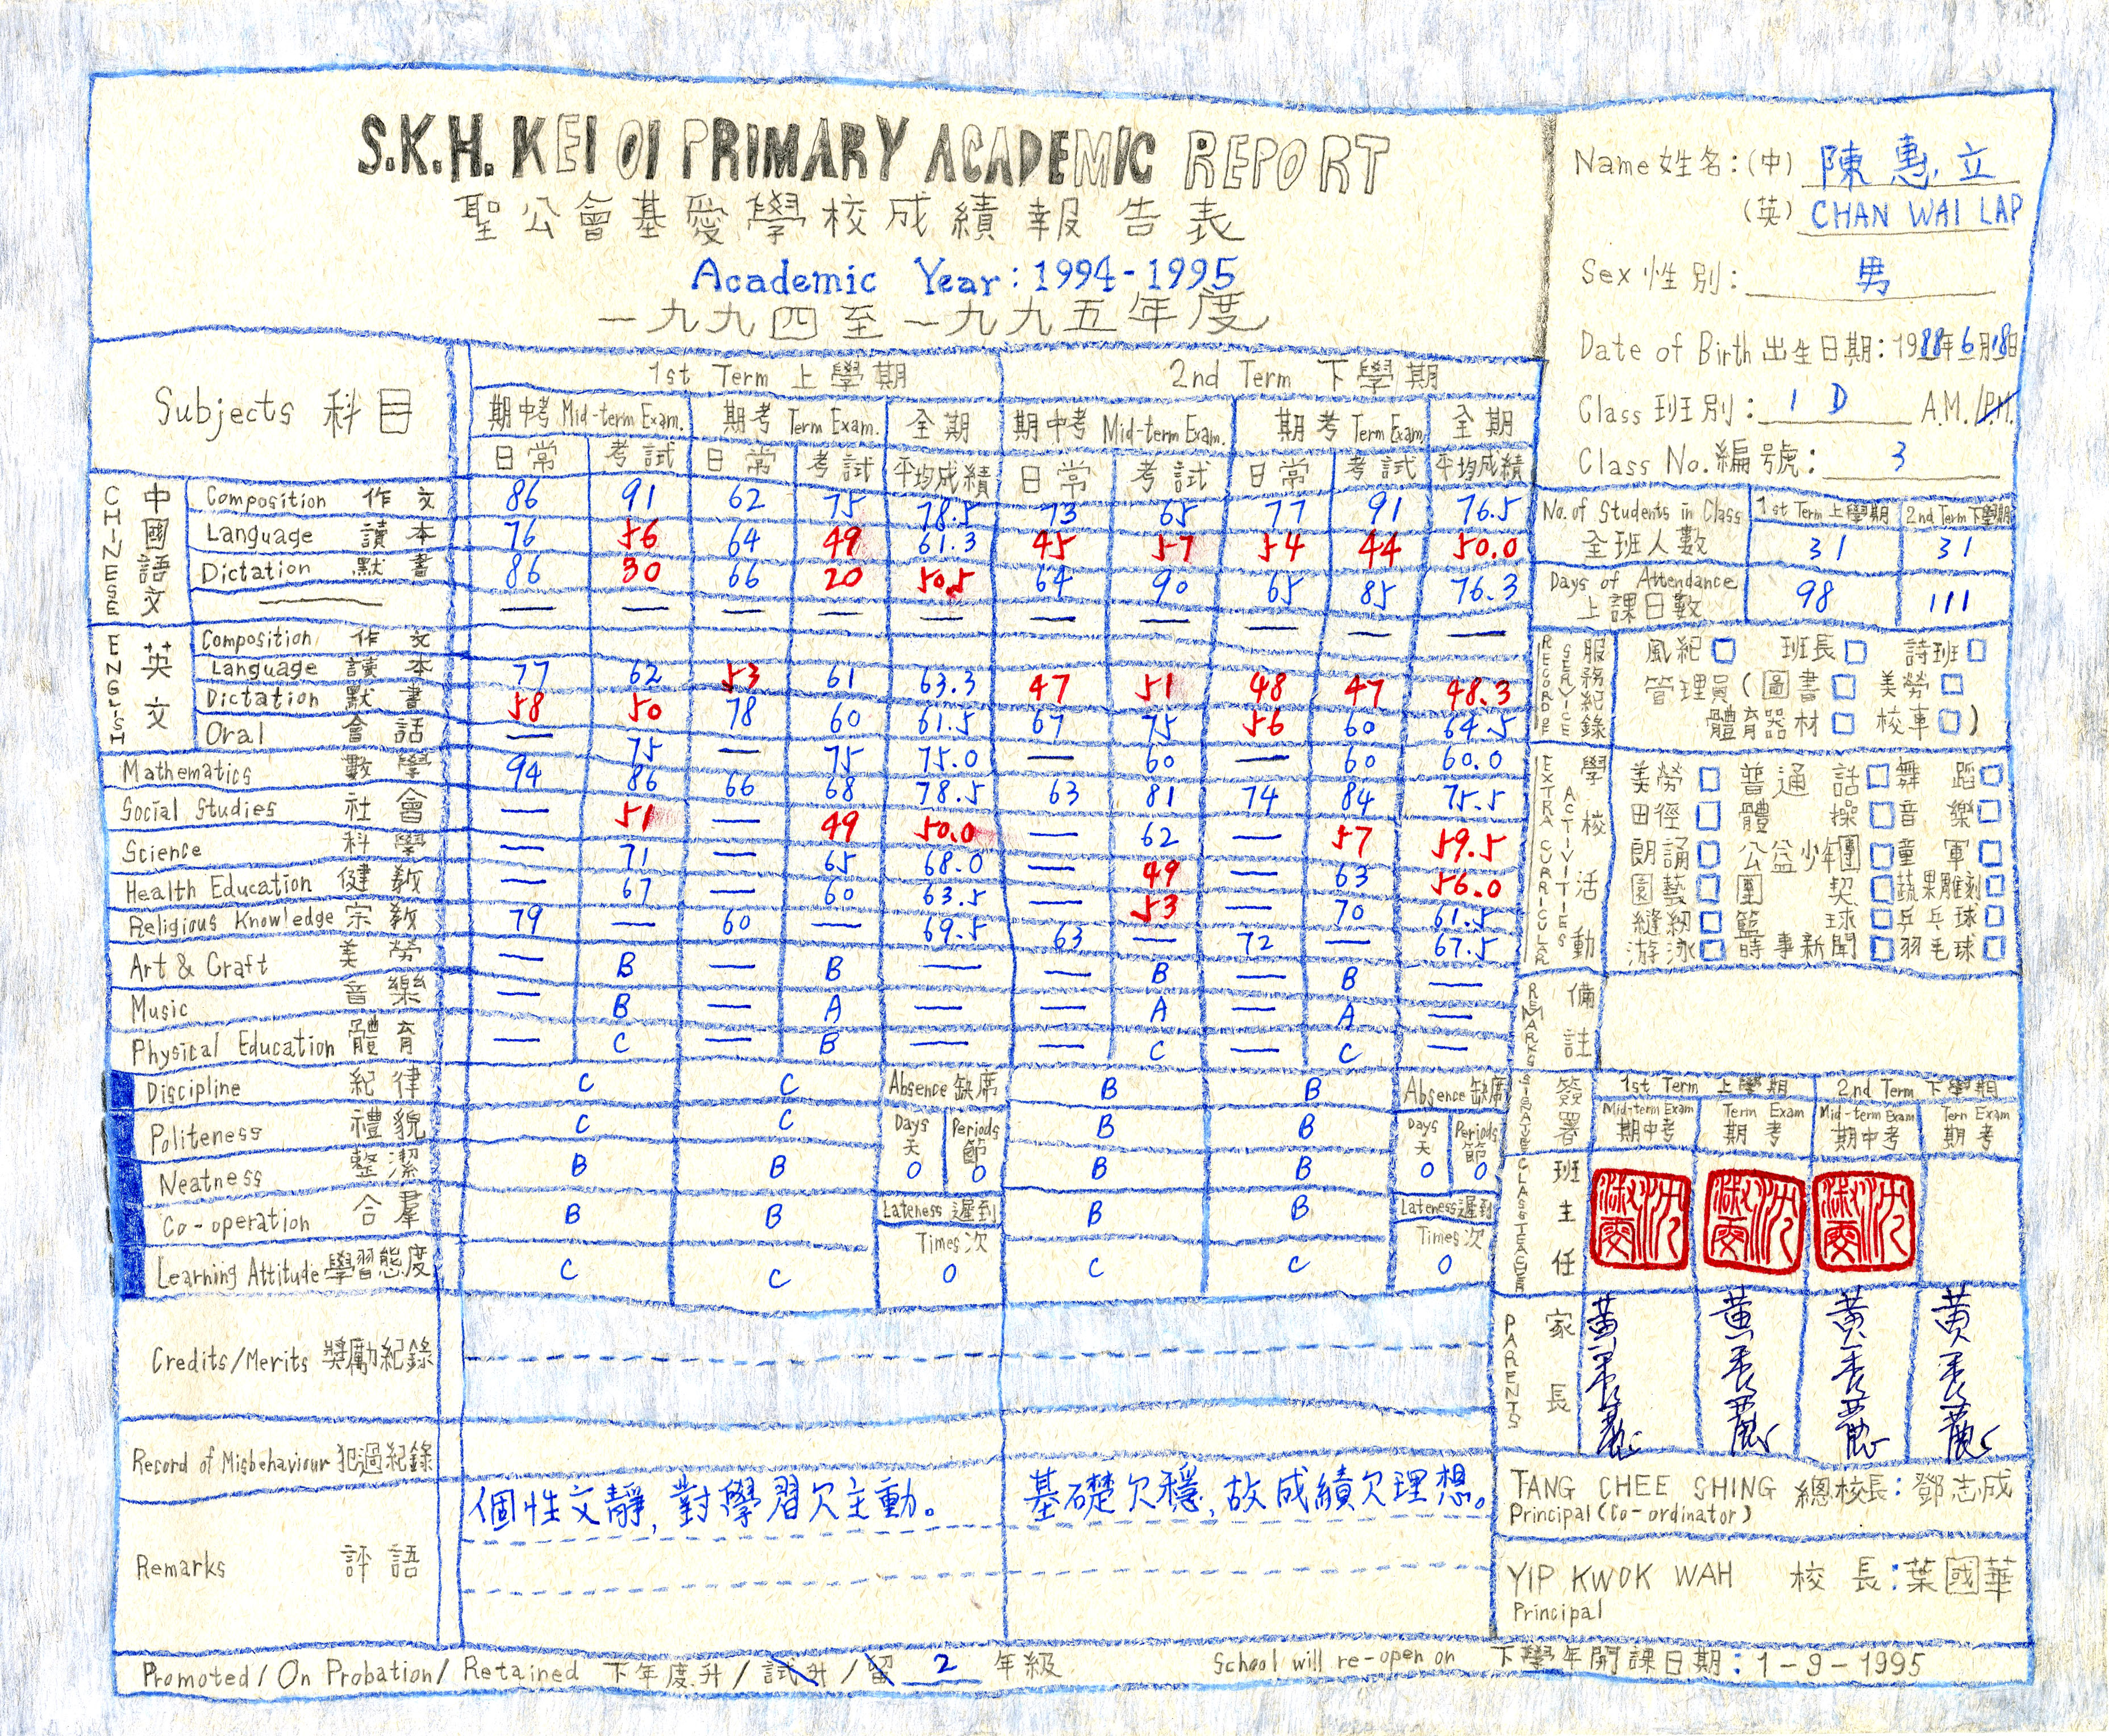 S.K.H. KEI OI PRIMARY ACADEMIC REPORT
聖公會基愛學校成績報告表
Academic Year: 1994-1995
一九九四至一九九五年度
Name 姓名：(中) 陳惠立
(英) CHAN WAI LAP
Sex 性別： 男
Date of Birth 出生日期：1988年6月18日
Class 班別： 1 D A.M./P.M.
Class No. 編號： 3
Subjects 科目
1st Term 上學期 2nd Term 下學期
期中考 Mid-term Exam. 期考 Term Exam. 全期 期中考 Mid-term Exam. 期考 Term Exam. 全期
日常 考試 日常 考試 平均成績 日常 考試 日常 考試 平均成績
CHINESE 中國語文
Composition 作文 86 91 62 75 78.5 73 65 77 91 76.5
Language 讀本 76 56 64 49 61.3 45 57 54 44 50.0
Dictation 默書 86 30 66 20 50.5 64 90 65 85 76.3
— — — — — — — — — — —
ENGLISH 英文
Composition 作文 — — — — — — — — — —
Language 讀本 77 62 53 61 63.3 47 51 48 47 48.3
Dictation 默書 58 50 78 60 61.5 67 75 56 60 64.5
Oral 會話 — 75 — 75 75.0 — 60 — 60 60.0
Mathematics 數學 94 86 66 68 78.5 63 81 74 84 75.5
Social Studies 社會 — 51 — 49 50.0 — 62 — 57 59.5
Science 科學 — 71 — 65 68.0 — 49 — 63 56.0
Health Education 健教 — 67 — 60 63.5 — 53 — 70 61.5
Religious Knowledge 宗教 79 — 60 — 69.5 63 — 72 — 67.5
Art & Craft 美勞 — B — B — — B — B —
Music 音樂 — B — A — — A — A —
Physical Education 體育 — C — B — — C — C —
Discipline 紀律 C C Absence 缺席 B B Absence 缺席
Politeness 禮貌 C C Days 天 Periods 節 B B Days 天 Periods 節
Neatness 整潔 B B 0 0 B B 0 0
Co-operation 合羣 B B Lateness 遲到 B B Lateness 遲到
Times 次 Times 次
Learning Attitude 學習態度 C C 0 C C 0
Credits/Merits 獎勵紀錄
Record of Misbehaviour 犯過紀錄
Remarks 評語
個性文靜, 對學習欠主動。 基礎欠穩, 故成績欠理想。
Promoted / On Probation / Retained 下年度升 / 試升 / 留 2 年級
School will re-open on 下學年開課日期：1-9-1995
No. of Students in Class 1st Term 上學期 2nd Term 下學期
全班人數 31 31
Days of Attendance
上課日數 98 111
RECORD OF SERVICE 服務紀錄
風紀 班長 詩班
管理員 (圖書 美勞
體育器材 校車 )
EXTRA CURRICULAR ACTIVITIES 學校活動
美勞 普通話 舞蹈
田徑 體操 音樂
朗誦 公益少年團 童軍
園藝 團契 蔬果雕刻
縫紉 籃球 乒乓球
游泳 時事新聞 羽毛球
REMARKS 備註
SIGNATURE 簽署
1st Term 上學期 2nd Term 下學期
Mid-term Exam Term Exam Mid-term Exam Term Exam
期中考 期考 期中考 期考
CLASS TEACHER 班主任
PARENTS 家長
TANG CHEE SHING 總校長：鄧志成
Principal (Co-ordinator)
YIP KWOK WAH 校長：葉國華
Principal